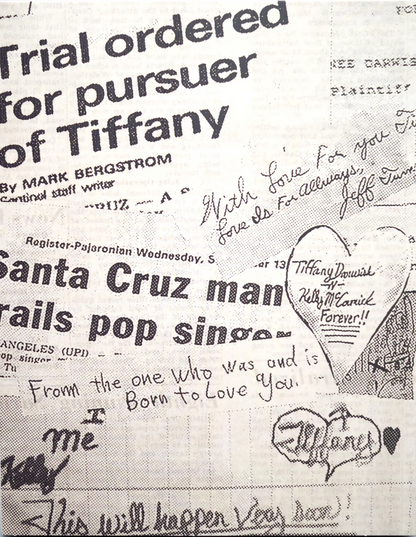 Trial ordered
for pursuer
of Tiffany
By MARK BERGSTROM
Sentinel staff writer
Plaintiff
With Love For you
Love Is For Allways,
Jeff
Register-Pajaronian Wednesday, S
Santa Cruz man
rails pop singer
ANGELES (UPI) –
op singer
Tiffany Darwish
-N-
Kelly McCormick
Forever!!
From the one who was and is
Born to Love You.
I
Me
Kelly
Tiffany
This will happen Very soon!!